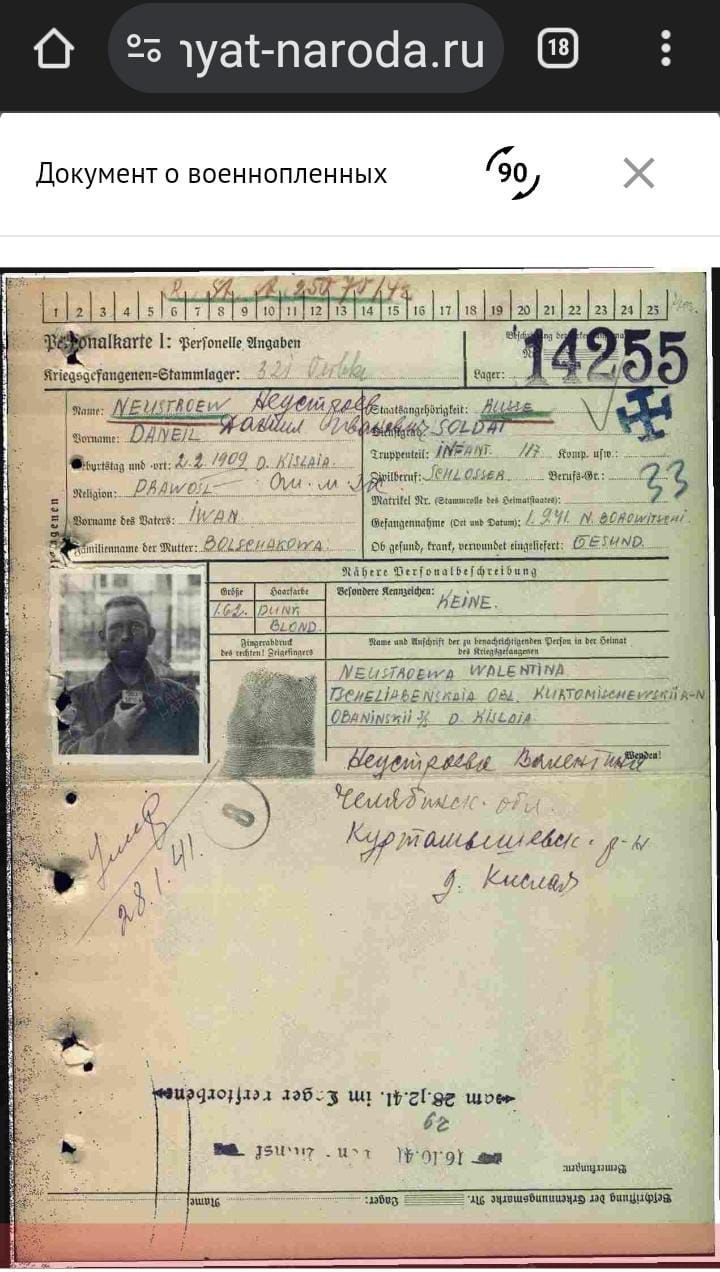 nyat-naroda.ru 18
Документ о военнопленных 90
1 2 3 4 5 6 7 8 9 10 11 12 13 14 15 16 17 18 19 20 21 22 23 24 25
Personalkarte I: Personelle Angaben
Kriegsgefangenen-Stammlager: 321
Lager: 14255
Name: NEUSTROEW Неустроев
Staatsangehörigkeit: RUSSE
Vorname: DANEIL Даниил Иванович
Dienstgrad: SOLDAT
Geburtstag und -ort: 2.2.1909 D. KISLAIA.
Truppenteil: INFANT. 117 Komp. usw.:
Religion: PRAWOSL
Zivilberuf: SCHLOSSER Berufs-Gr.: 33
Matrikel Nr. (Stammrolle des Heimatstaates):
Vorname des Vaters: IWAN
Gefangennahme (Ort und Datum): 1.9.41. N. BOROWITSCHI.
Familienname der Mutter: BOLSCHAKOWA.
Ob gesund, krank, verwundet eingeliefert: GESUND.
Nähere Personalbeschreibung
Größe Haarfarbe Besondere Kennzeichen:
1.62. DUNK BLOND. KEINE.
Fingerabdruck
des rechten! Zeigefingers
Name und Anschrift der zu benachrichtigenden Person in der Heimat
des Kriegsgefangenen
NEUSTROEWA WALENTINA
TSCHELIABENSKAIA OBL. KURTOMISCHEWSKII R-N
OBANINSKII S/S D. KISLAIA
Wenden!
Неустроева Валентина
Челябинск. обл.
Курташышевск. р-н
д. Кислая
8
28.1.41.
am 28.12.41. im Lager verstorben
29
16.10.41
Bemerkungen:
Beschriftung der Erkennungsmarke Nr. Lager: Name